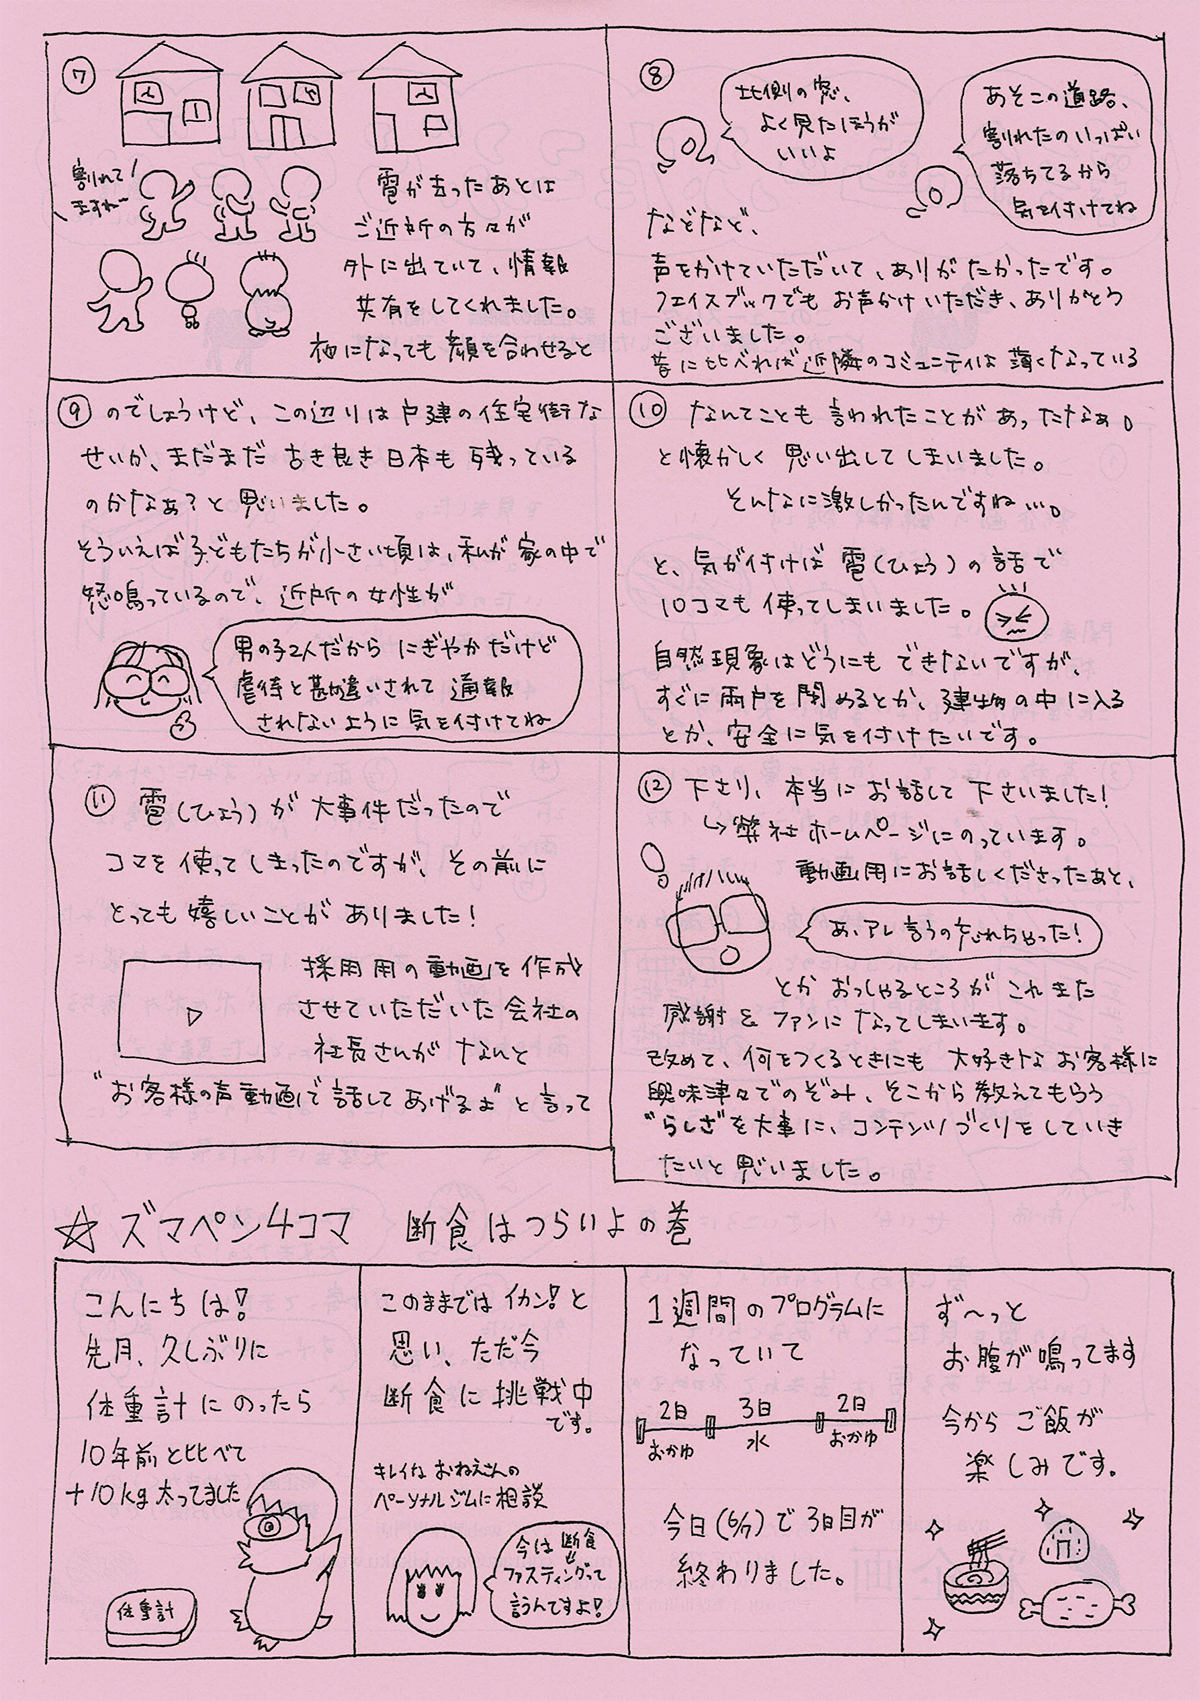 ⑦
割れて
ますね〜
雹が去ったあとは
ご近所の方々が
外に出ていて、情報
共有をしてくれました。
夜になっても顔を合わせると
⑧
北側の窓、
よく見たほうが
いいよ
あそこの道路、
割れたのいっぱい
落ちてるから
気を付けてね
などなど、
声をかけていただいて、ありがたかったです。
フェイスブックでもお声かけいただき、ありがとう
ございました。
昔に比べれば近隣のコミュニティは薄くなっている
⑨ のでしょうけど、この辺りは戸建の住宅街な
せいか、まだまだ古き良き日本も残っている
のかなぁ?と思いました。
そういえば子どもたちが小さい頃は、私が家の中で
怒鳴っているので、近所の女性が
男の子2人だからにぎやかだけど
虐待と勘違いされて通報
されないように気を付けてね
⑩ なんてことも言われたことがあったなぁ。
と懐かしく思い出してしまいました。
そんなに激しかったんですね…。
と、気が付けば雹(ひょう)の話で
10コマも使ってしまいました。
自然現象はどうにもできないですが、
すぐに雨戸を閉めるとか、建物の中に入る
とか、安全に気を付けたいです。
⑪ 雹(ひょう)が大事件だったので
コマを使ってしまったのですが、その前に
とっても嬉しいことがありました!
採用用の動画を作成
させていただいた会社の
社長さんがなんと
"お客様の声動画で話してあげるよ"と言って
⑫ 下さり、本当にお話して下さいました!
↳弊社ホームページにのっています。
動画用にお話しくださったあと、
あ、アレ言うの忘れちゃった!
とかおっしゃるところがこれまた
感謝&ファンになってしまいます。
改めて、何をつくるときにも大好きなお客様に
興味津々でのぞみ、そこから教えてもらう
"らしさ"を大事に、コンテンツづくりをしていき
たいと思いました。
☆ズマペン4コマ 断食はつらいよの巻
こんにちは!
先月、久しぶりに
体重計にのったら
10年前と比べて
+10kg太ってました
体重計
このままではイカン!と
思い、ただ今
断食に挑戦中
です。
キレイなおねえさんの
パーソナルジムに相談
今は断食
↓
ファスティングって
言うんですよ!
1週間のプログラムに
なっていて
2日 3日 2日
おかゆ 水 おかゆ
今日(6/7)で3日目が
終わりました。
ず〜っと
お腹が鳴ってます
今からご飯が
楽しみです。